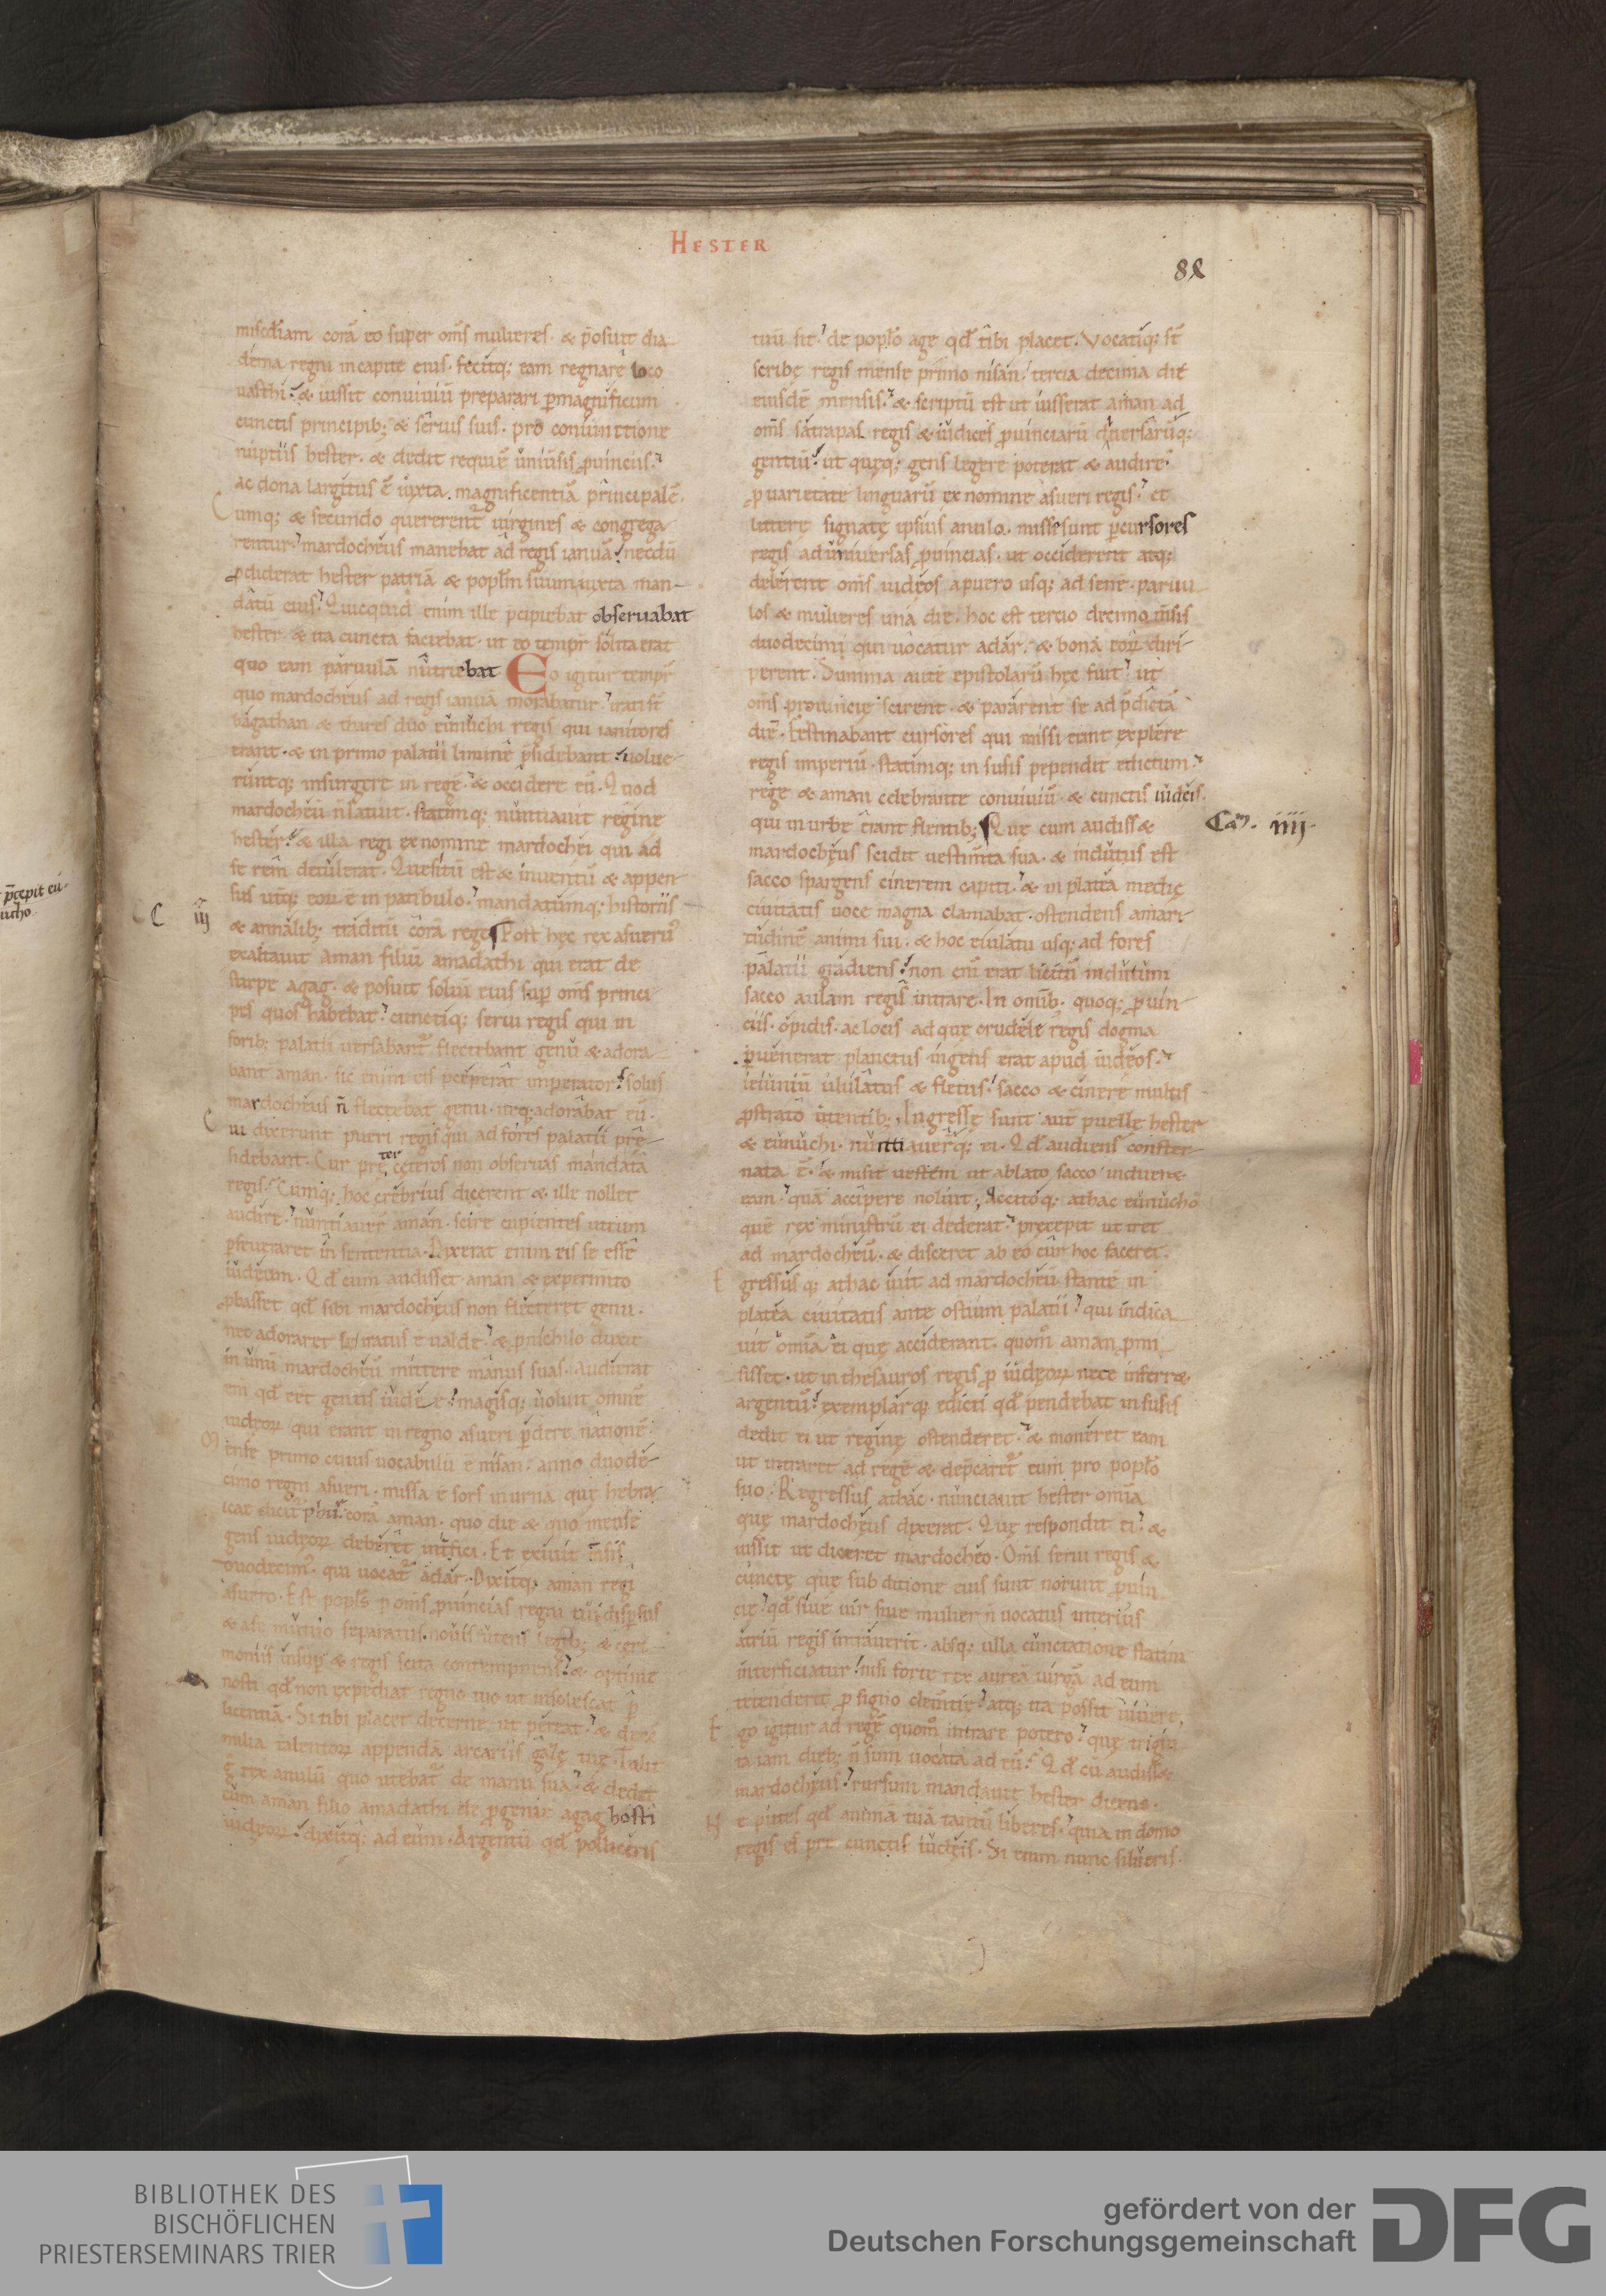 HESTER
88
misc̄diam corā eo super om̄s mulieres. & p̄osuit dia-
dema regni in capite eius. fecitq; eam regnare loco
uasthi. & iussit conuiuiū preparari p̄magnificum
cunctis principib; & seruis suis. pro coniunctione
nuptiis hester. & dedit requiē uniūsis prouinciis.
ac dona largitus ē iuxta magnificentiā principalē.
C umq; & secundo quererent̄ uirgines & congrega
rentur. mardocheus manebat ad regis ianuā. necdū
prodiderat hester patriā & popl̄m suum iuxta man-
datū eius. Quicquid enim ille p̄cipiebat obseruabat
hester. & ita cuncta faciebat. ut eo tempr̄ solita erat
quo eam paruulā nutriebat Eo igitur tempr̄
quo mardocheus ad regis ianuā morabatur. irati st̄
bagathan & thares duo eunuchi regis qui ianitores
erant. & in primo palatii limine p̄sidebant. uolue-
runtq; insurgere in regē. & occidere eū. Quod
mardocheū n̄ latuit. statimq; nuntiauit regine
hester. & illa regi ex nomine mardochei qui ad
se rem detulerat. Quesitū est & inuentū & appen-
sus utq; eoꝝ ē in patibulo. mandatumq; historiis
C iij
& annalib; traditū corā rege. Post hęc rex asueru᷒
exaltauit aman filiū amadathi qui erat de
stirpe agag. & posuit soliū eius sup̄ om̄s princi
pes quos habebat. cunctiq; serui regis qui in
forib; palatii uersabant̄ flectebant genu & adora-
bant aman. sic enim eis p̄ceperat imperator. solus
mardocheus n̄ flectebat genu. neq; adorabat eū.
C ui dixerunt pueri regis qui ad fores palatii pre-
sidebant. Cur pręter cęteros non obseruas mandata
regis. Cumq; hoc crebrius dicerent & ille nollet
audire. nuntiauer̄ aman. scire cupientes utrum
p̄seueraret in sententia. Dixerat enim eis se esse
iudęum. Qđ cum audisset aman & experim̄to
probasset qđ sibi mardochęus non flecteret genu.
nec adoraret se. iratus ē ualde. & pro nichilo duxit
in unū mardocheū mittere manus suas. Audierat
enī qđ eēt gentis iudeę. magisq; uoluit omnē
iudęoꝝ qui erant in regno asueri p̄dere nationē.
M ense primo cuius uocabulū ē nisan. anno duode-
cimo regni asueri. missa ē sors in urnā que hebra-
icae dicit̄ phur. corā aman. quo die & quo mense
gens iudęoꝝ deberet int̄fici. Et exiuit m̄sis
duodecim᷒. qui uocat̄ adar. Dixitq; aman regi
asuero. Est popl̄s p̄ om̄s prouincias regni tui disp̄sus
& a se mutuo separatus. nouis utens legib; & ceri-
moniis insup̄ & regis scita contempnens. & optime
nosti qđ non expediat regno tuo ut insolescat p̄
licentiā. Si tibi placet decerne ut pereat. & decē
milia talentoꝝ appendā arcariis gazę tuę. Tulit
g̊ rex anulū quo utebat̄ de manu sua. & dedit
eum aman filio amadathi de progenie agag hosti
iudęoꝝ. dixitq; ad eum. Argentū qđ polliceris
tuū sit. de popl̄o age qđ tibi placet. Vocatiq; st̄
scribę regis mense primo nisan. tercia decima die
eiusdē mensis. & scriptū est ut iusserat aman ad
om̄s satrapas regis & iudices prouinciarū diuersarūq;
gentiū. ut queq; gens legere poterat & audire.
pro uarietate linguarū ex nomine asueri regis. et
litterę signatę ipsius anulo. missę sunt p̄ cursores
regis ad uniuersas prouincias. ut occiderent atq;
delerent om̄s iudęos a puero usq; ad senē. paruu-
los & mulieres una die. hoc est tercio decimo m̄sis
duodecimi qui uocatur adar. & bona eoꝝ diri-
perent. Summa autē epistolarū hęc fuit. ut
om̄s prouincię scirent. & pararent se ad p̄dictā
diē. Festinabant cursores qui missi erant explere
regis imperiū. statimq; in susis pependit edictum.
rege & aman celebrante conuiuiū. & cunctis iudeis
Cap. iiij.
qui in urbe erant flentib; Que cum audiss&
mardochęus scidit uestim̄ta sua. & indutus est
sacco spargens cinerem capiti. & in platea medię
ciuitatis uoce magna clamabat. ostendens amari-
tudinē animi sui. & hoc eiulatu usq; ad fores
palatii gradiens. non enī erat licitū indutum
sacco aulam regis intrare. In omīb; quoq; prouin-
ciis. opidis. ac locis ad quę crudele regis dogma
p̄uenerat planctus ingens erat apud iudęos.
ieiuniū ululatus & fletus. sacco & cinere multis
pro strato utentib; Ingressę sunt aut̄ puellę hester
& eunuchi. nuntiauer̄q; ei. Qđ audiens conster-
nata ē. & misit uestem ut ablato sacco induere
eam. quā accipere noluit. Accitoq; athac eunucho
quē rex ministrū ei dederat. pręcepit ut iret
ad mardocheū. & disceret ab eo cur hoc faceret.
E gressusq; athac iuit ad mardocheū stantē in
platea ciuitatis ante ostium palatii. qui indica-
uit omīa ei quę acciderant. quom̄ aman promi-
sisset. ut in thesauros regis pro iudęoꝝ nece inferr&
argentū. exemplarq; edicti qđ pendebat in susis
dedit ei ut reginę ostenderet. & moneret eam
ut intraret ad regē & dep̄caret̄ eum pro popl̄o
suo. Regressus athac. nunciauit hester omīa
quę mardochęus dixerat. Quę respondit ei. &
iussit ut diceret mardocheo. Om̄s serui regis &
cunctę quę sub ditione eius sunt norunt prouin-
cię. qđ siue uir siue mulier n̄ uocatus interius
atriū regis intrauerit. absq; ulla cunctatione statim
interficiatur. nisi forte rex aureā uirgā ad eum
tetenderit pro signo clem̄tię. atq; ita possit uiuere.
E go igitur ad regē quom̄ intrare potero. quę trigin-
ta iam dieb; n̄ sum uocata ad eū. Qđ cū audiss&
mardochęus. rursum mandauit hester dicens.
N e putes qđ animā tuā tantū liberes. quia in domo
regis es pre cunctis iudęis. Si enim nunc silueris.
BIBLIOTHEK DES
BISCHÖFLICHEN
PRIESTERSEMINARS TRIER
gefördert von der
Deutschen Forschungsgemeinschaft
DFG